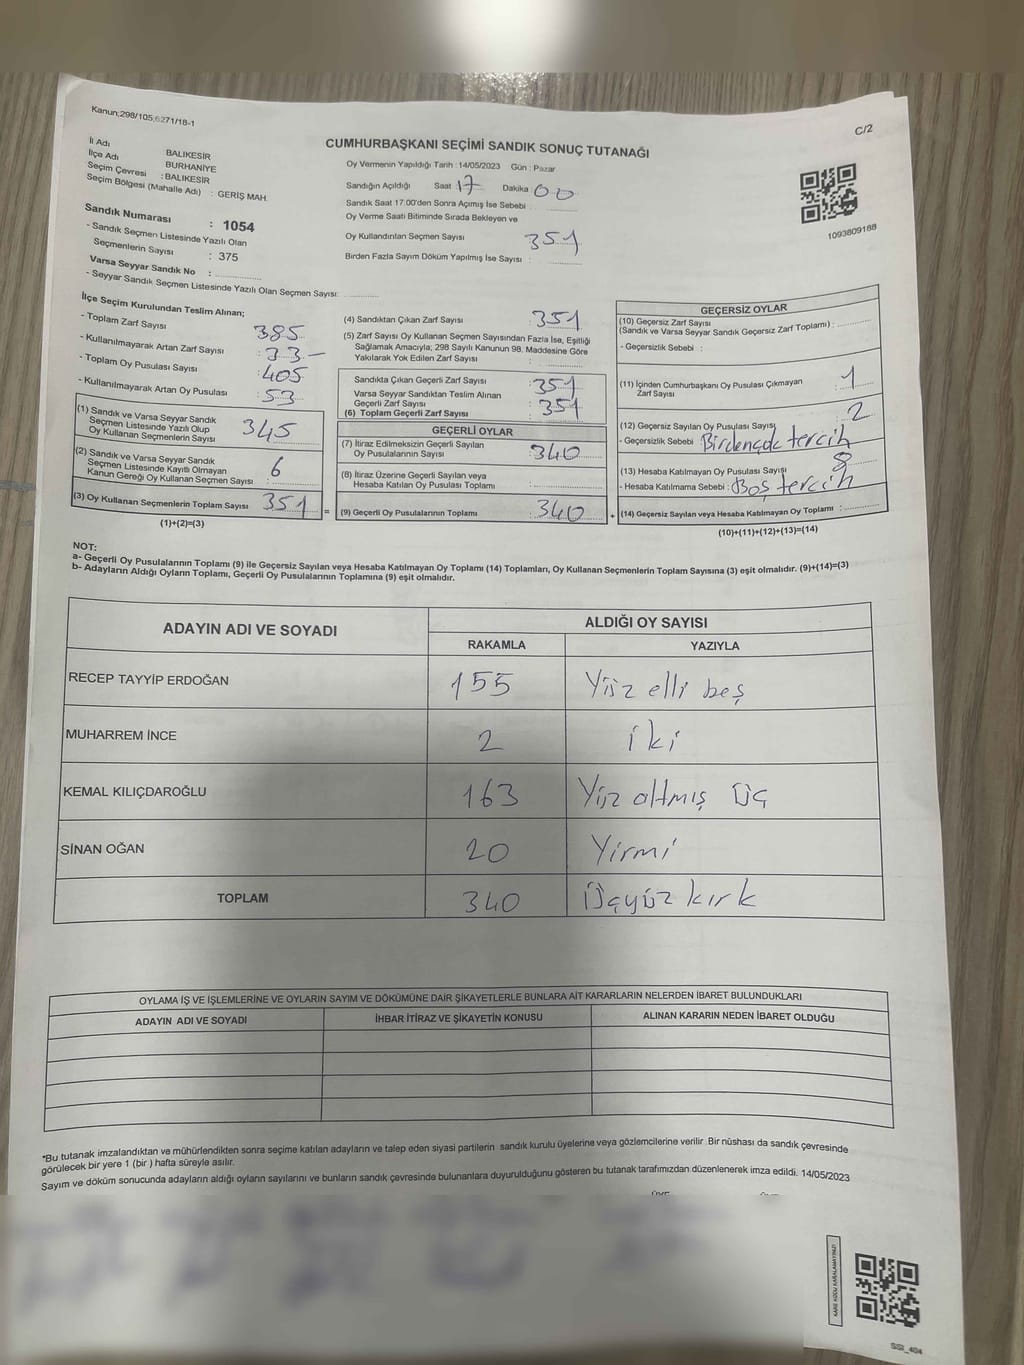 Kanun;298/105;6271/18-1
C/2
CUMHURBAŞKANI SEÇİMİ SANDIK SONUÇ TUTANAĞI
İl Adı BALIKESİR
İlçe Adı BURHANİYE
Seçim Çevresi : BALIKESİR
Seçim Bölgesi (Mahalle Adı) : GERİŞ MAH.
Sandık Numarası : 1054
- Sandık Seçmen Listesinde Yazılı Olan
Seçmenlerin Sayısı : 375
Varsa Seyyar Sandık No :
- Seyyar Sandık Seçmen Listesinde Yazılı Olan Seçmen Sayısı:
Oy Vermenin Yapıldığı Tarih : 14/05/2023 Gün : Pazar
Sandığın Açıldığı Saat 17 Dakika 00
Sandık Saat 17.00'den Sonra Açımış İse Sebebi :
Oy Verme Saati Bitiminde Sırada Bekleyen ve
Oy Kullandırılan Seçmen Sayısı 351
Birden Fazla Sayım Döküm Yapılmış İse Sayısı :
1093809188
İlçe Seçim Kurulundan Teslim Alınan;
- Toplam Zarf Sayısı 385
- Kullanılmayarak Artan Zarf Sayısı : 33-
- Toplam Oy Pusulası Sayısı : 405
- Kullanılmayarak Artan Oy Pusulası : 53
(1) Sandık ve Varsa Seyyar Sandık
Seçmen Listesinde Yazılı Olup
Oy Kullanan Seçmenlerin Sayısı 345
(2) Sandık ve Varsa Seyyar Sandık
Seçmen Listesinde Kayıtlı Olmayan
Kanun Gereği Oy Kullanan Seçmen Sayısı : 6
(3) Oy Kullanan Seçmenlerin Toplam Sayısı 351
(1)+(2)=(3)
=
(4) Sandıktan Çıkan Zarf Sayısı : 351
(5) Zarf Sayısı Oy Kullanan Seçmen Sayısından Fazla İse, Eşitliği
Sağlamak Amacıyla; 298 Sayılı Kanunun 98. Maddesine Göre
Yakılarak Yok Edilen Zarf Sayısı :
Sandıkta Çıkan Geçerli Zarf Sayısı : 351
Varsa Seyyar Sandıktan Teslim Alınan
Geçerli Zarf Sayısı
(6) Toplam Geçerli Zarf Sayısı : 351
GEÇERLİ OYLAR
(7) İtiraz Edilmeksizin Geçerli Sayılan
Oy Pusulalarının Sayısı : 340
(8) İtiraz Üzerine Geçerli Sayılan veya
Hesaba Katılan Oy Pusulası Toplamı :
(9) Geçerli Oy Pusulalarının Toplamı : 340
+
GEÇERSİZ OYLAR
(10) Geçersiz Zarf Sayısı
(Sandık ve Varsa Seyyar Sandık Geçersiz Zarf Toplamı) :
- Geçersizlik Sebebi :
(11) İçinden Cumhurbaşkanı Oy Pusulası Çıkmayan
Zarf Sayısı : 1
(12) Geçersiz Sayılan Oy Pusulası Sayısı 2
- Geçersizlik Sebebi : Birdençok tercih
(13) Hesaba Katılmayan Oy Pusulası Sayısı 8
- Hesaba Katılmama Sebebi : Boş tercih
(14) Geçersiz Sayılan veya Hesaba Katılmayan Oy Toplamı :
(10)+(11)+(12)+(13)=(14)
NOT:
a- Geçerli Oy Pusulalarının Toplamı (9) ile Geçersiz Sayılan veya Hesaba Katılmayan Oy Toplamı (14) Toplamları, Oy Kullanan Seçmenlerin Toplam Sayısına (3) eşit olmalıdır. (9)+(14)=(3)
b- Adayların Aldığı Oyların Toplamı, Geçerli Oy Pusulalarının Toplamına (9) eşit olmalıdır.
ADAYIN ADI VE SOYADI ALDIĞI OY SAYISI
RAKAMLA YAZIYLA
RECEP TAYYİP ERDOĞAN 155 Yüz elli beş
MUHARREM İNCE 2 iki
KEMAL KILIÇDAROĞLU 163 Yüz altmış Üç
SİNAN OĞAN 20 Yirmi
TOPLAM 340 Üçyüz kırk
OYLAMA İŞ VE İŞLEMLERİNE VE OYLARIN SAYIM VE DÖKÜMÜNE DAİR ŞİKAYETLERLE BUNLARA AİT KARARLARIN NELERDEN İBARET BULUNDUKLARI
ADAYIN ADI VE SOYADI İHBAR İTİRAZ VE ŞİKAYETİN KONUSU ALINAN KARARIN NEDEN İBARET OLDUĞU
*Bu tutanak imzalandıktan ve mühürlendikten sonra seçime katılan adayların ve talep eden siyasi partilerin sandık kurulu üyelerine veya gözlemcilerine verilir. Bir nüshası da sandık çevresinde
görülecek bir yere 1 (bir) hafta süreyle asılır.
Sayım ve döküm sonucunda adayların aldığı oyların sayılarını ve bunların sandık çevresinde bulunanlara duyurulduğunu gösteren bu tutanak tarafımızdan düzenlenerek imza edildi. 14/05/2023
SSI_404